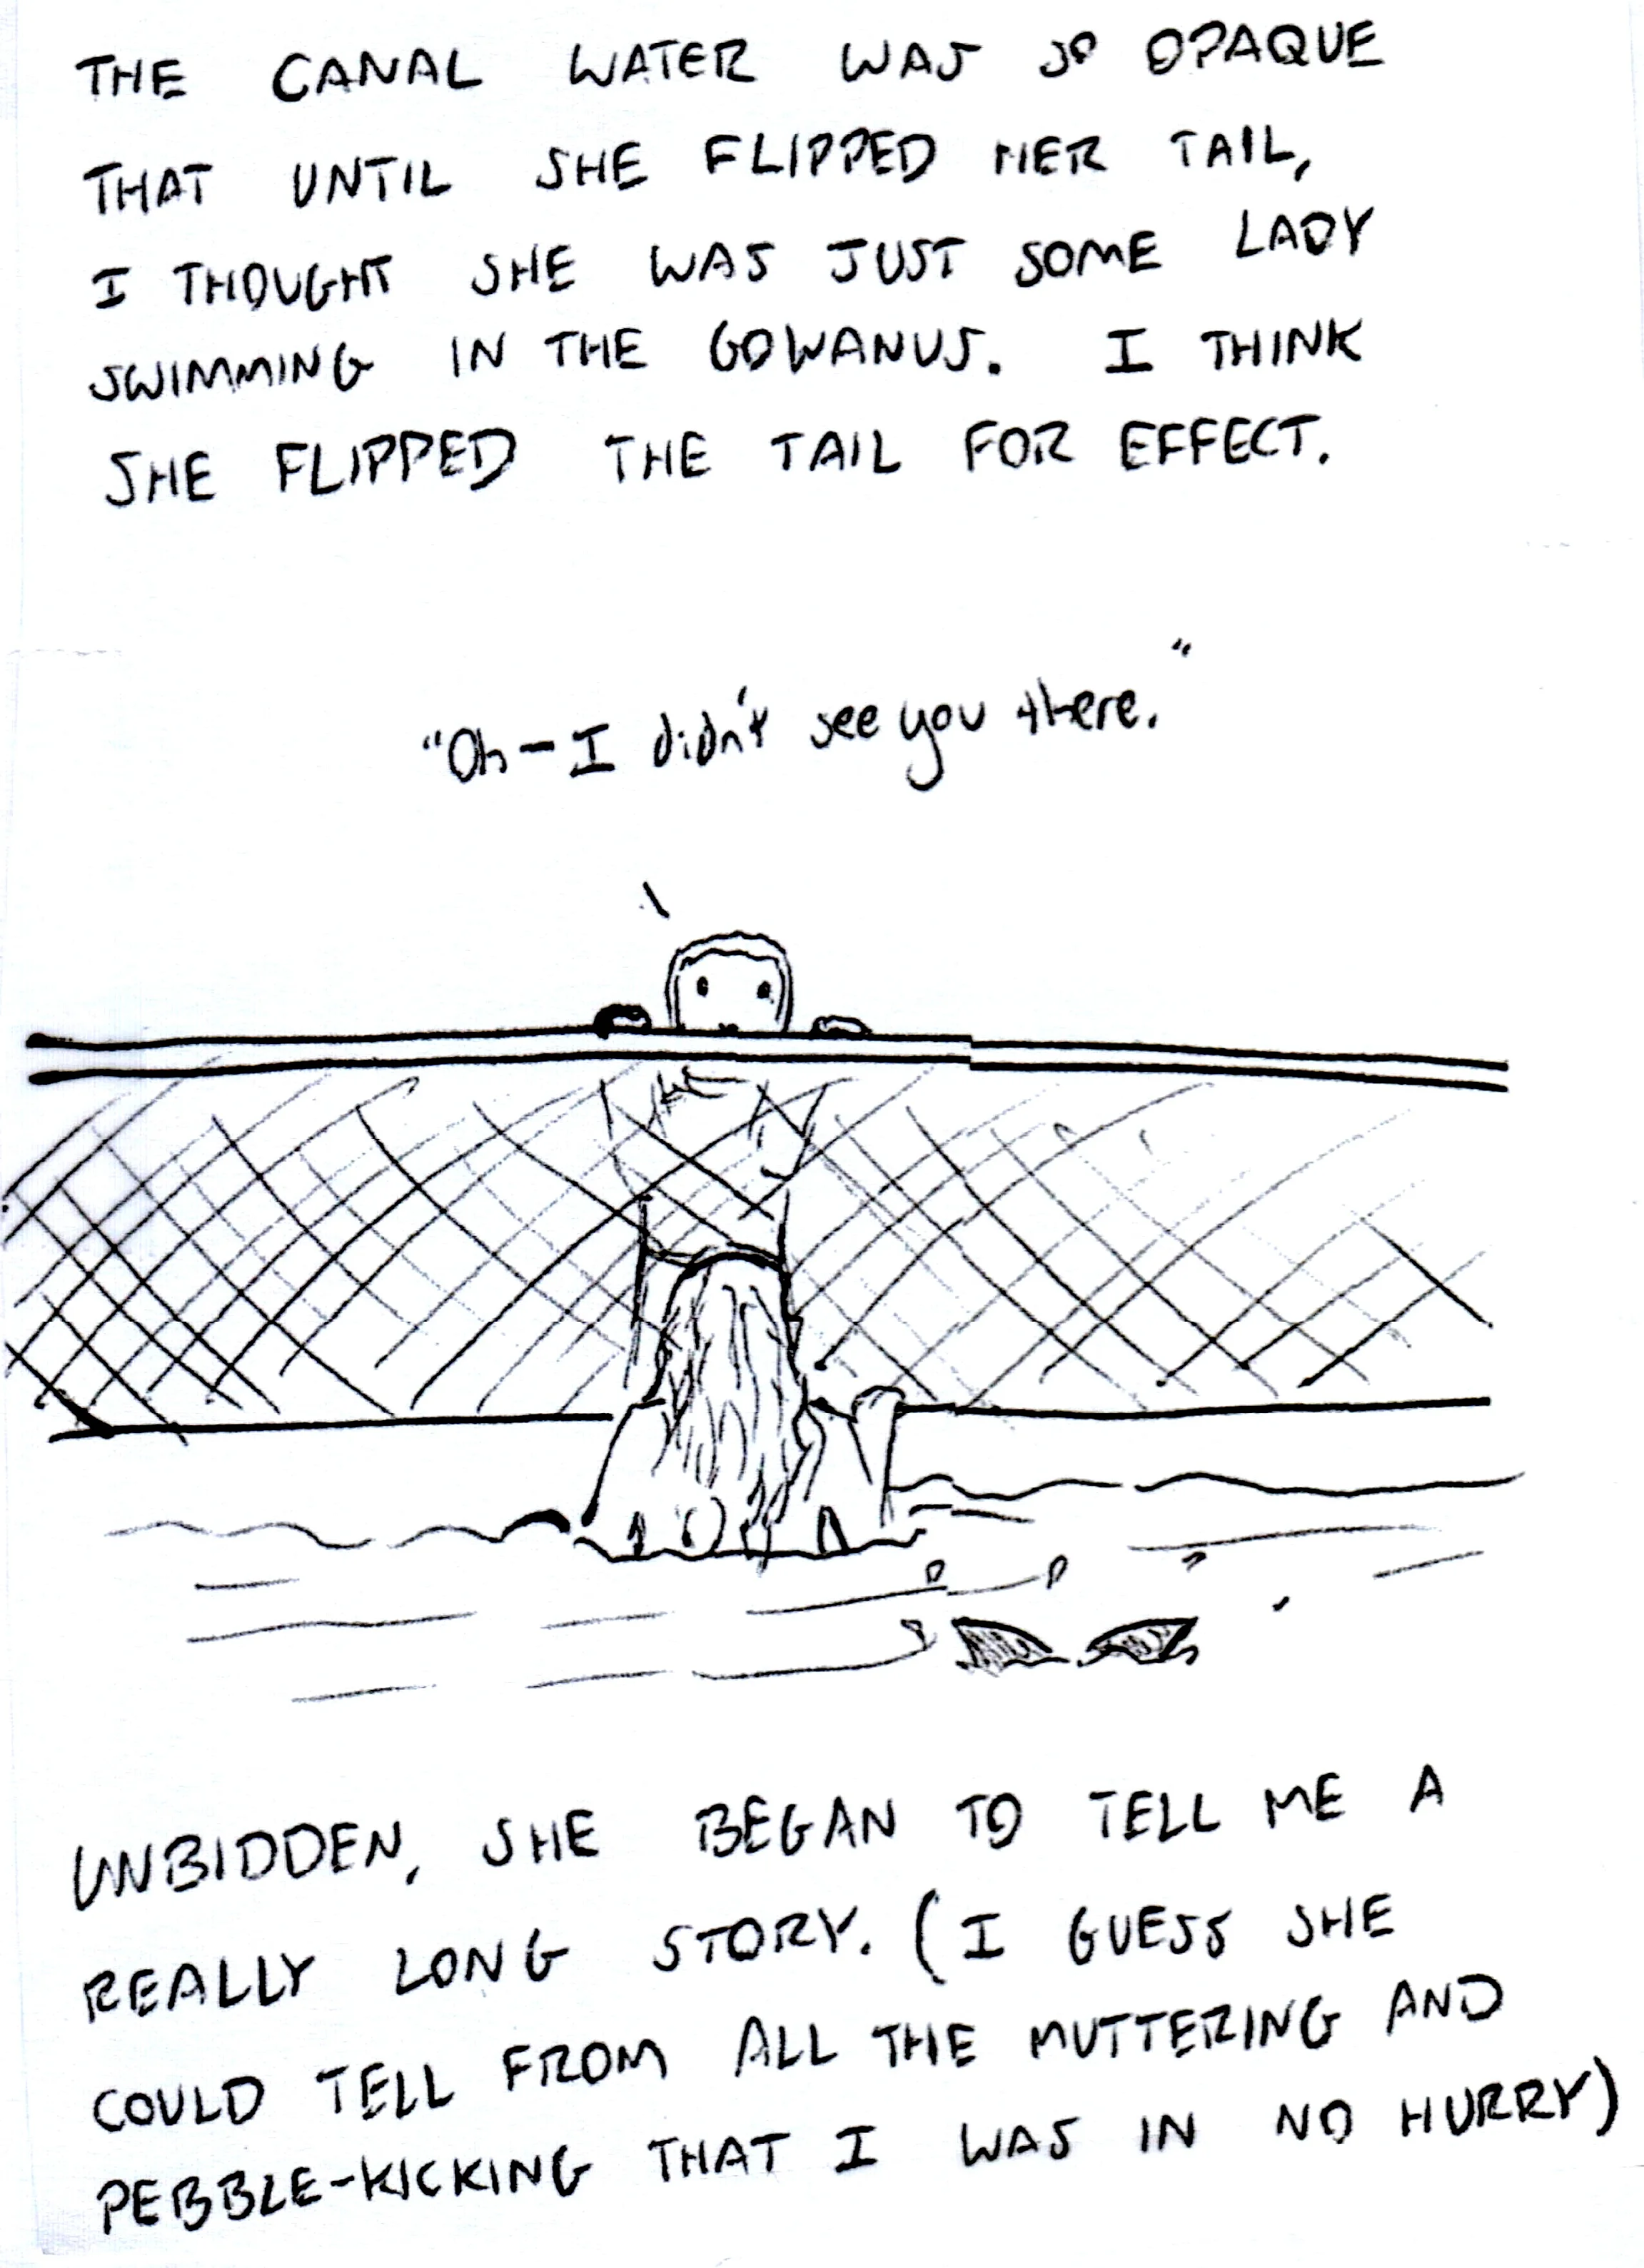 THE CANAL WATER WAS SO OPAQUE
THAT UNTIL SHE FLIPPED HER TAIL,
I THOUGHT SHE WAS JUST SOME LADY
SWIMMING IN THE GOWANUS. I THINK
SHE FLIPPED THE TAIL FOR EFFECT.
"Oh - I didn't see you there."
UNBIDDEN, SHE BEGAN TO TELL ME A
REALLY LONG STORY. (I GUESS SHE
COULD TELL FROM ALL THE MUTTERING AND
PEBBLE-KICKING THAT I WAS IN NO HURRY)